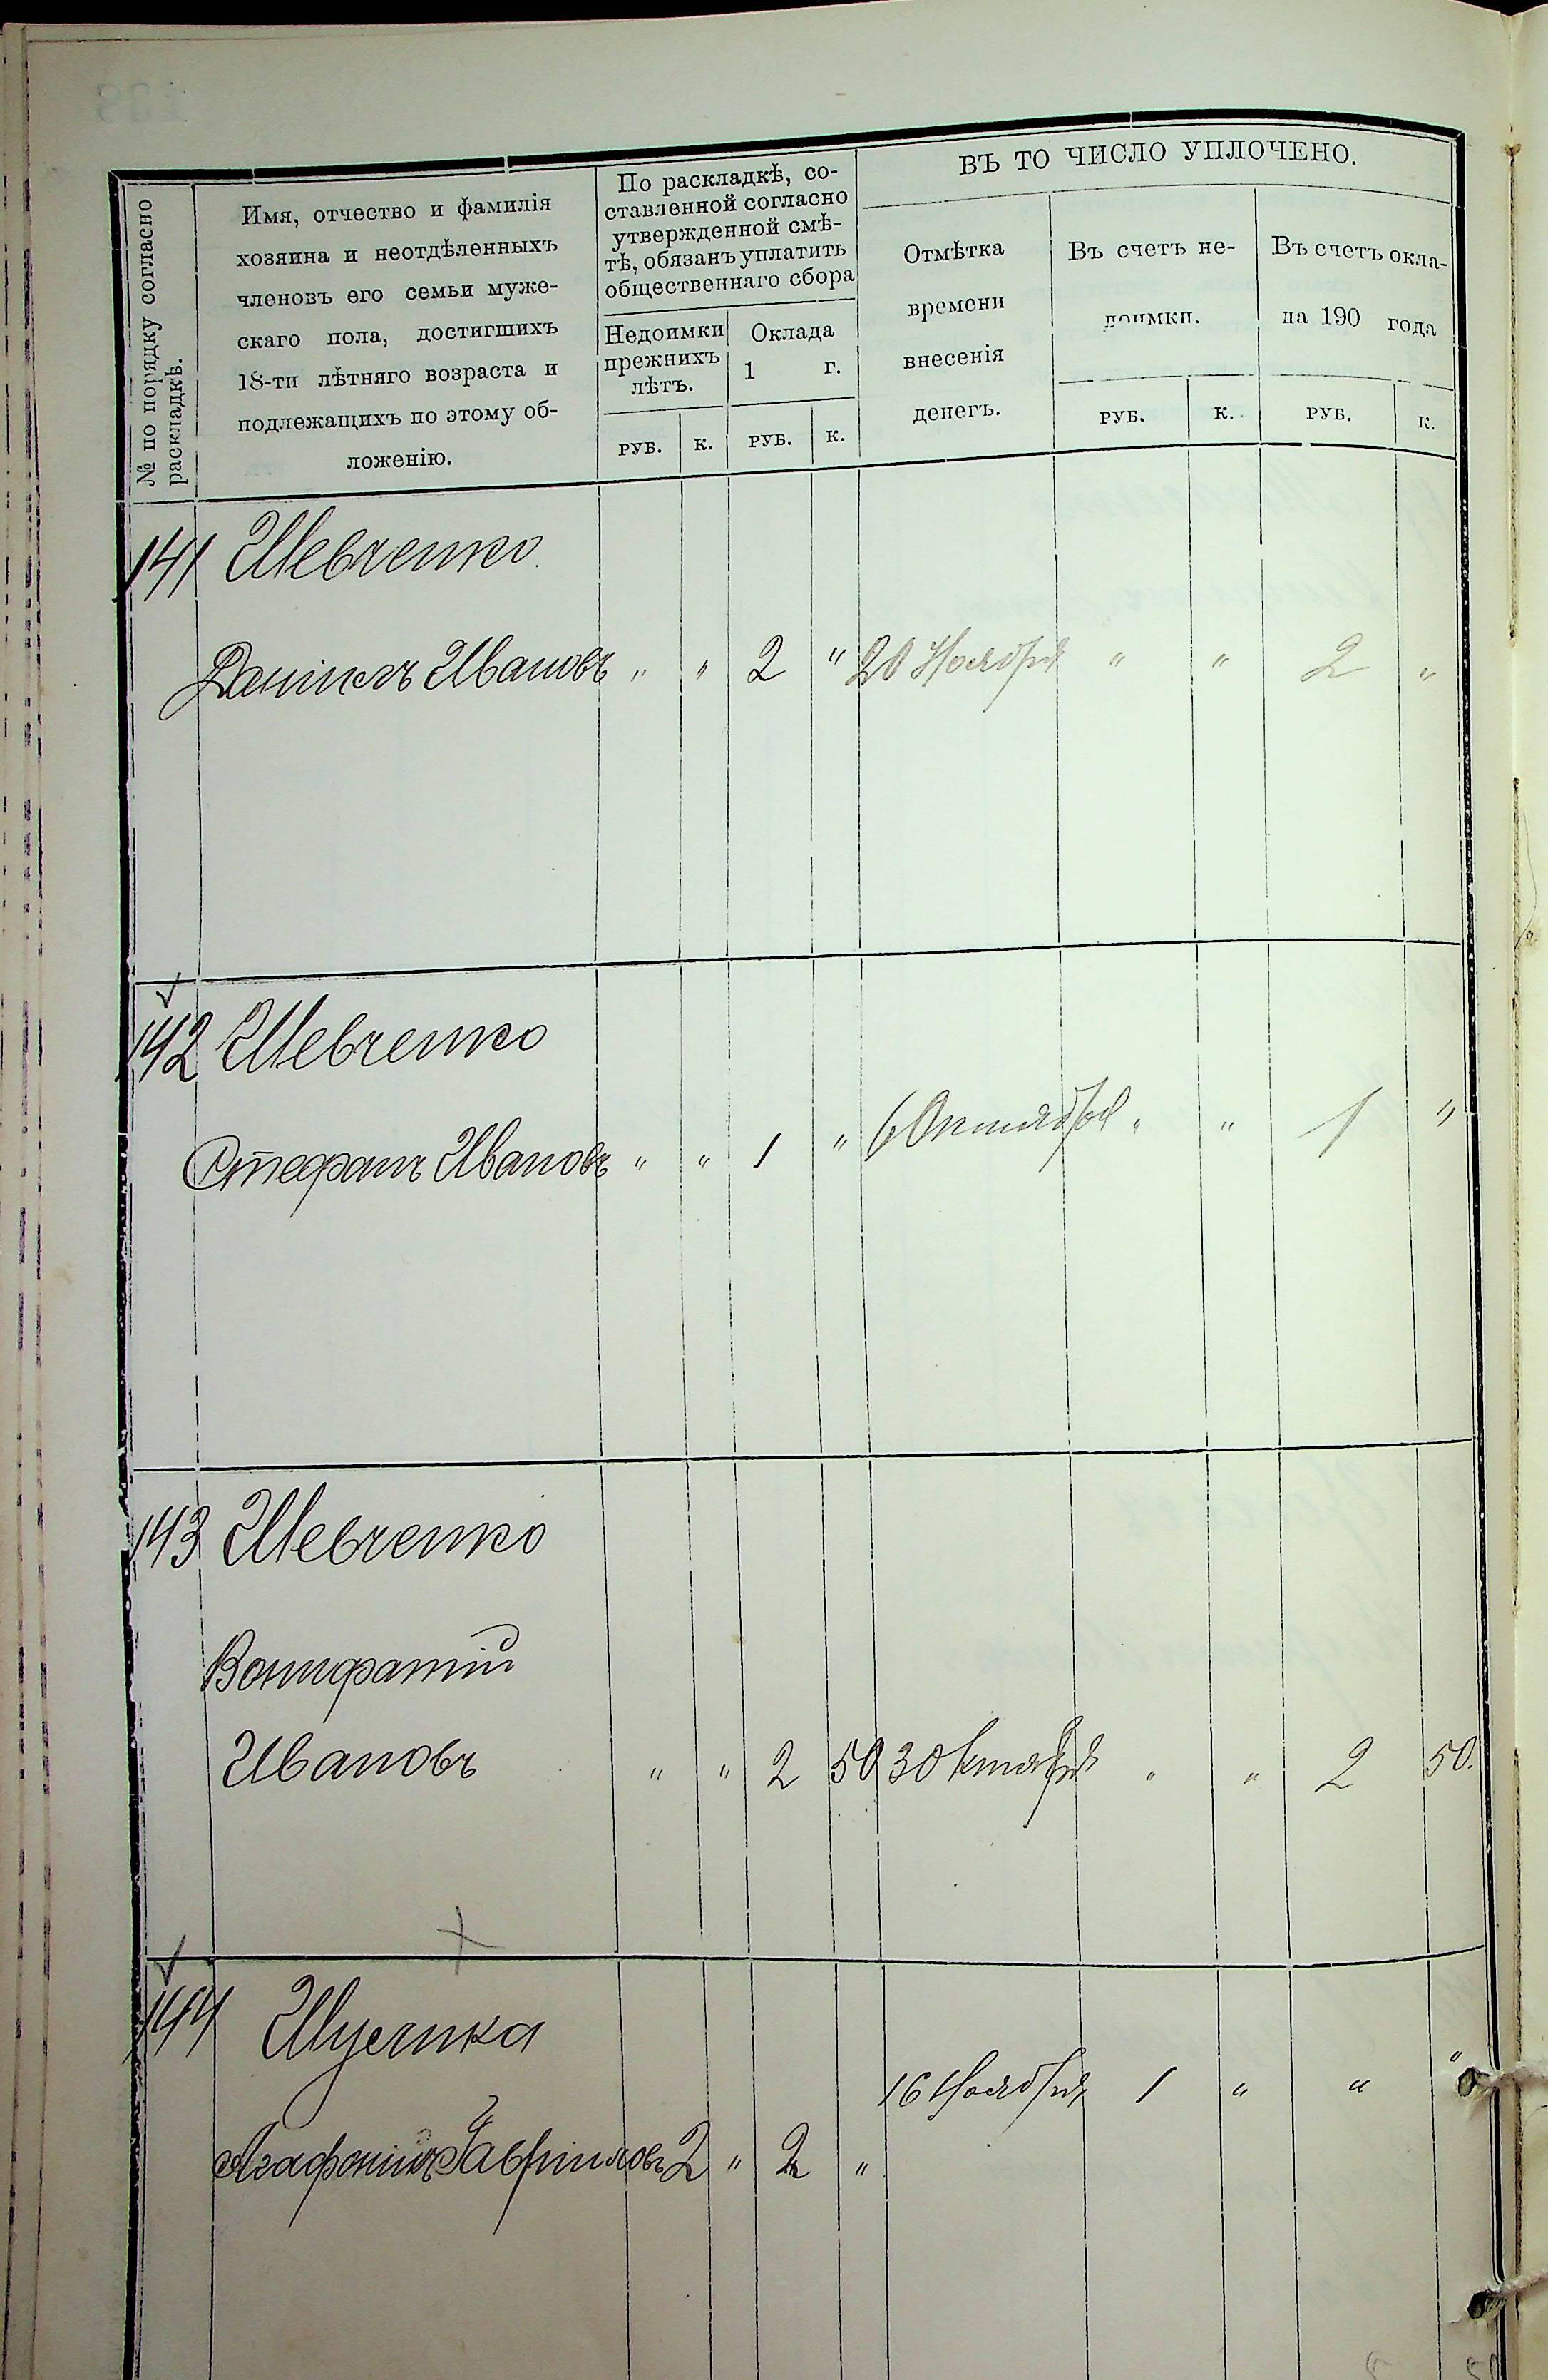 ВЪ ТО ЧИСЛО УПЛОЧЕНО.
№ по порядку согласно
раскладкѣ.
Имя, отчество и фамилія
хозяина и неотдѣленныхъ
членовъ его семьи муже-
скаго пола, достигшихъ
18-ти лѣтняго возраста и
подлежащихъ по этому об-
ложенію.
По раскладкѣ, со-
ставленной согласно
утвержденной смѣ-
тѣ, обязанъ уплатить
общественнаго сбора
Недоимки
прежнихъ
лѣтъ.
Оклада
1 г.
Отмѣтка
времени
внесенія
денегъ.
Въ счетъ не-
доимки.
Въ счетъ окла-
на 190 года
РУБ. К. РУБ. К. РУБ. К. РУБ. К.
141 Шевченко.
Даніилъ Ивановъ " " 2 " 20 Ноября " " 2 "
142 Шевченко
Стефанъ Ивановъ " " 1 " 6 Октября " " 1 "
143 Шевченко
Вонифатій
Ивановъ " " 2 50 30 ктября " " 2 50.
144
16 Ноября 1 " " "
Гавриловъ 2 " 2 "